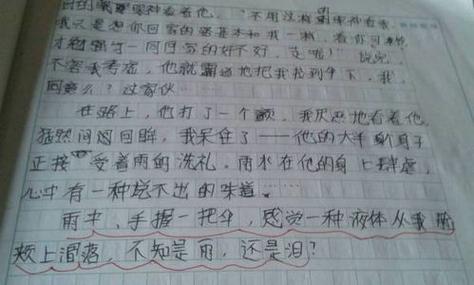 眼神看着他，“不用这样眼神看我，
我只是想你回家的路基本和我一样，看你可怜
才勉强与一同回家的好不好，走啦！”说完，
不容我考虑，他就霸道地把我拉到伞下，我
同意么？过家伙
在路上，他打了一个颤，我厌恶地看着他
猛然间回眸，我呆住了——他的大半身子
正接受着雨的洗礼，雨水在他的身上肆虐，
心中有一种说不出的味道……
雨中，手握一把伞，感觉一种液体从我脸
颊上滑落，不知是雨，还是泪？